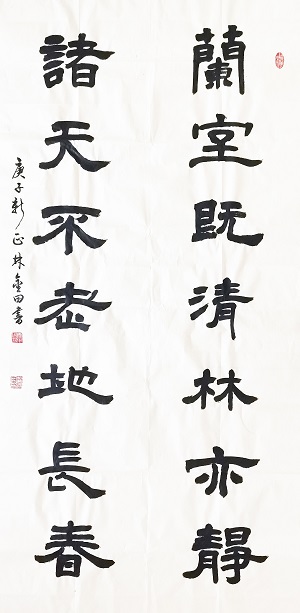 蘭室既清林亦靜
諸天不老地長春
庚子新正林金田書